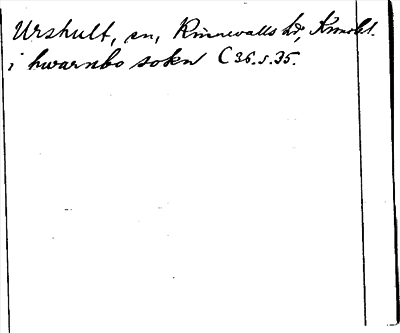 Urshult, sn, Kinnevalls hd, Kronobl.
i hwarnbo sokn C 36. s. 35.